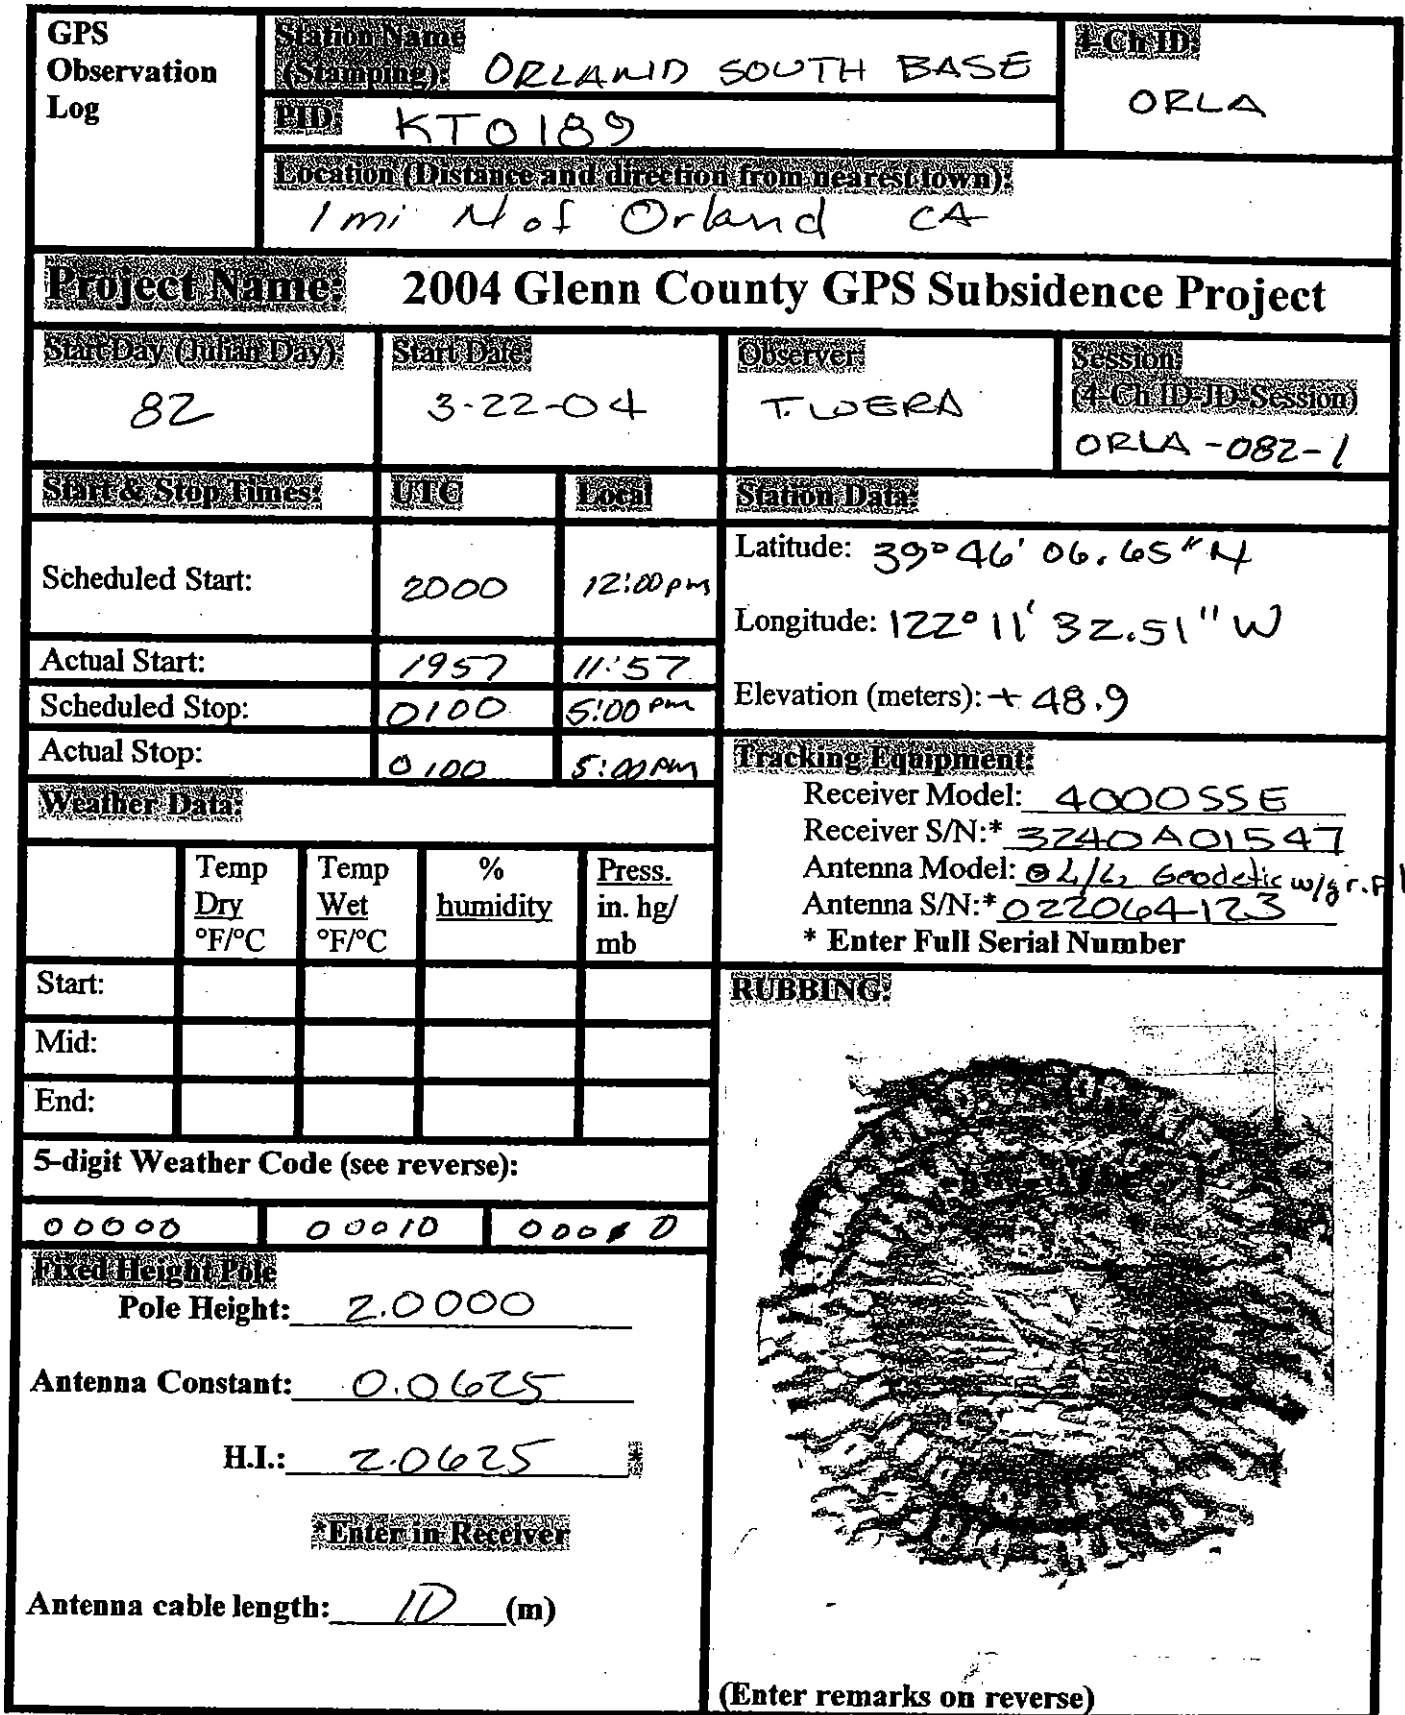 GPS
Observation
Log
Station Name
(Stamping): ORLAND SOUTH BASE
4-Ch ID:
ORLA
PID: KT0189
Location (Distance and direction from nearest town):
1 mi N of Orland CA
Project Name: 2004 Glenn County GPS Subsidence Project
Start Day (Julian Day):
82
Start Date:
3-22-04
Observer:
T. WERA
Session:
(4-Ch ID-JD-Session)
ORLA-082-1
Start & Stop Times: UTC Local
Scheduled Start: 2000 12:00 pm
Actual Start: 1957 11:57
Scheduled Stop: 0100 5:00 pm
Actual Stop: 0100 5:00 pm
Station Data:
Latitude: 39° 46' 06.65" N
Longitude: 122° 11' 32.51" W
Elevation (meters): + 48.9
Tracking Equipment:
Receiver Model: 4000SSE
Receiver S/N:* 3240A01547
Antenna Model: L1/L2 Geodetic w/gr.pl
Antenna S/N:* 022064123
* Enter Full Serial Number
Weather Data:
Temp
Dry
°F/°C
Temp
Wet
°F/°C
%
humidity
Press.
in. hg/
mb
Start:
Mid:
End:
5-digit Weather Code (see reverse):
00000 00010 00010
Fixed Height Pole
Pole Height: 2.0000
Antenna Constant: 0.0625
H.I.: 2.0625 *
*Enter in Receiver
Antenna cable length: 10 (m)
RUBBING:
(Enter remarks on reverse)